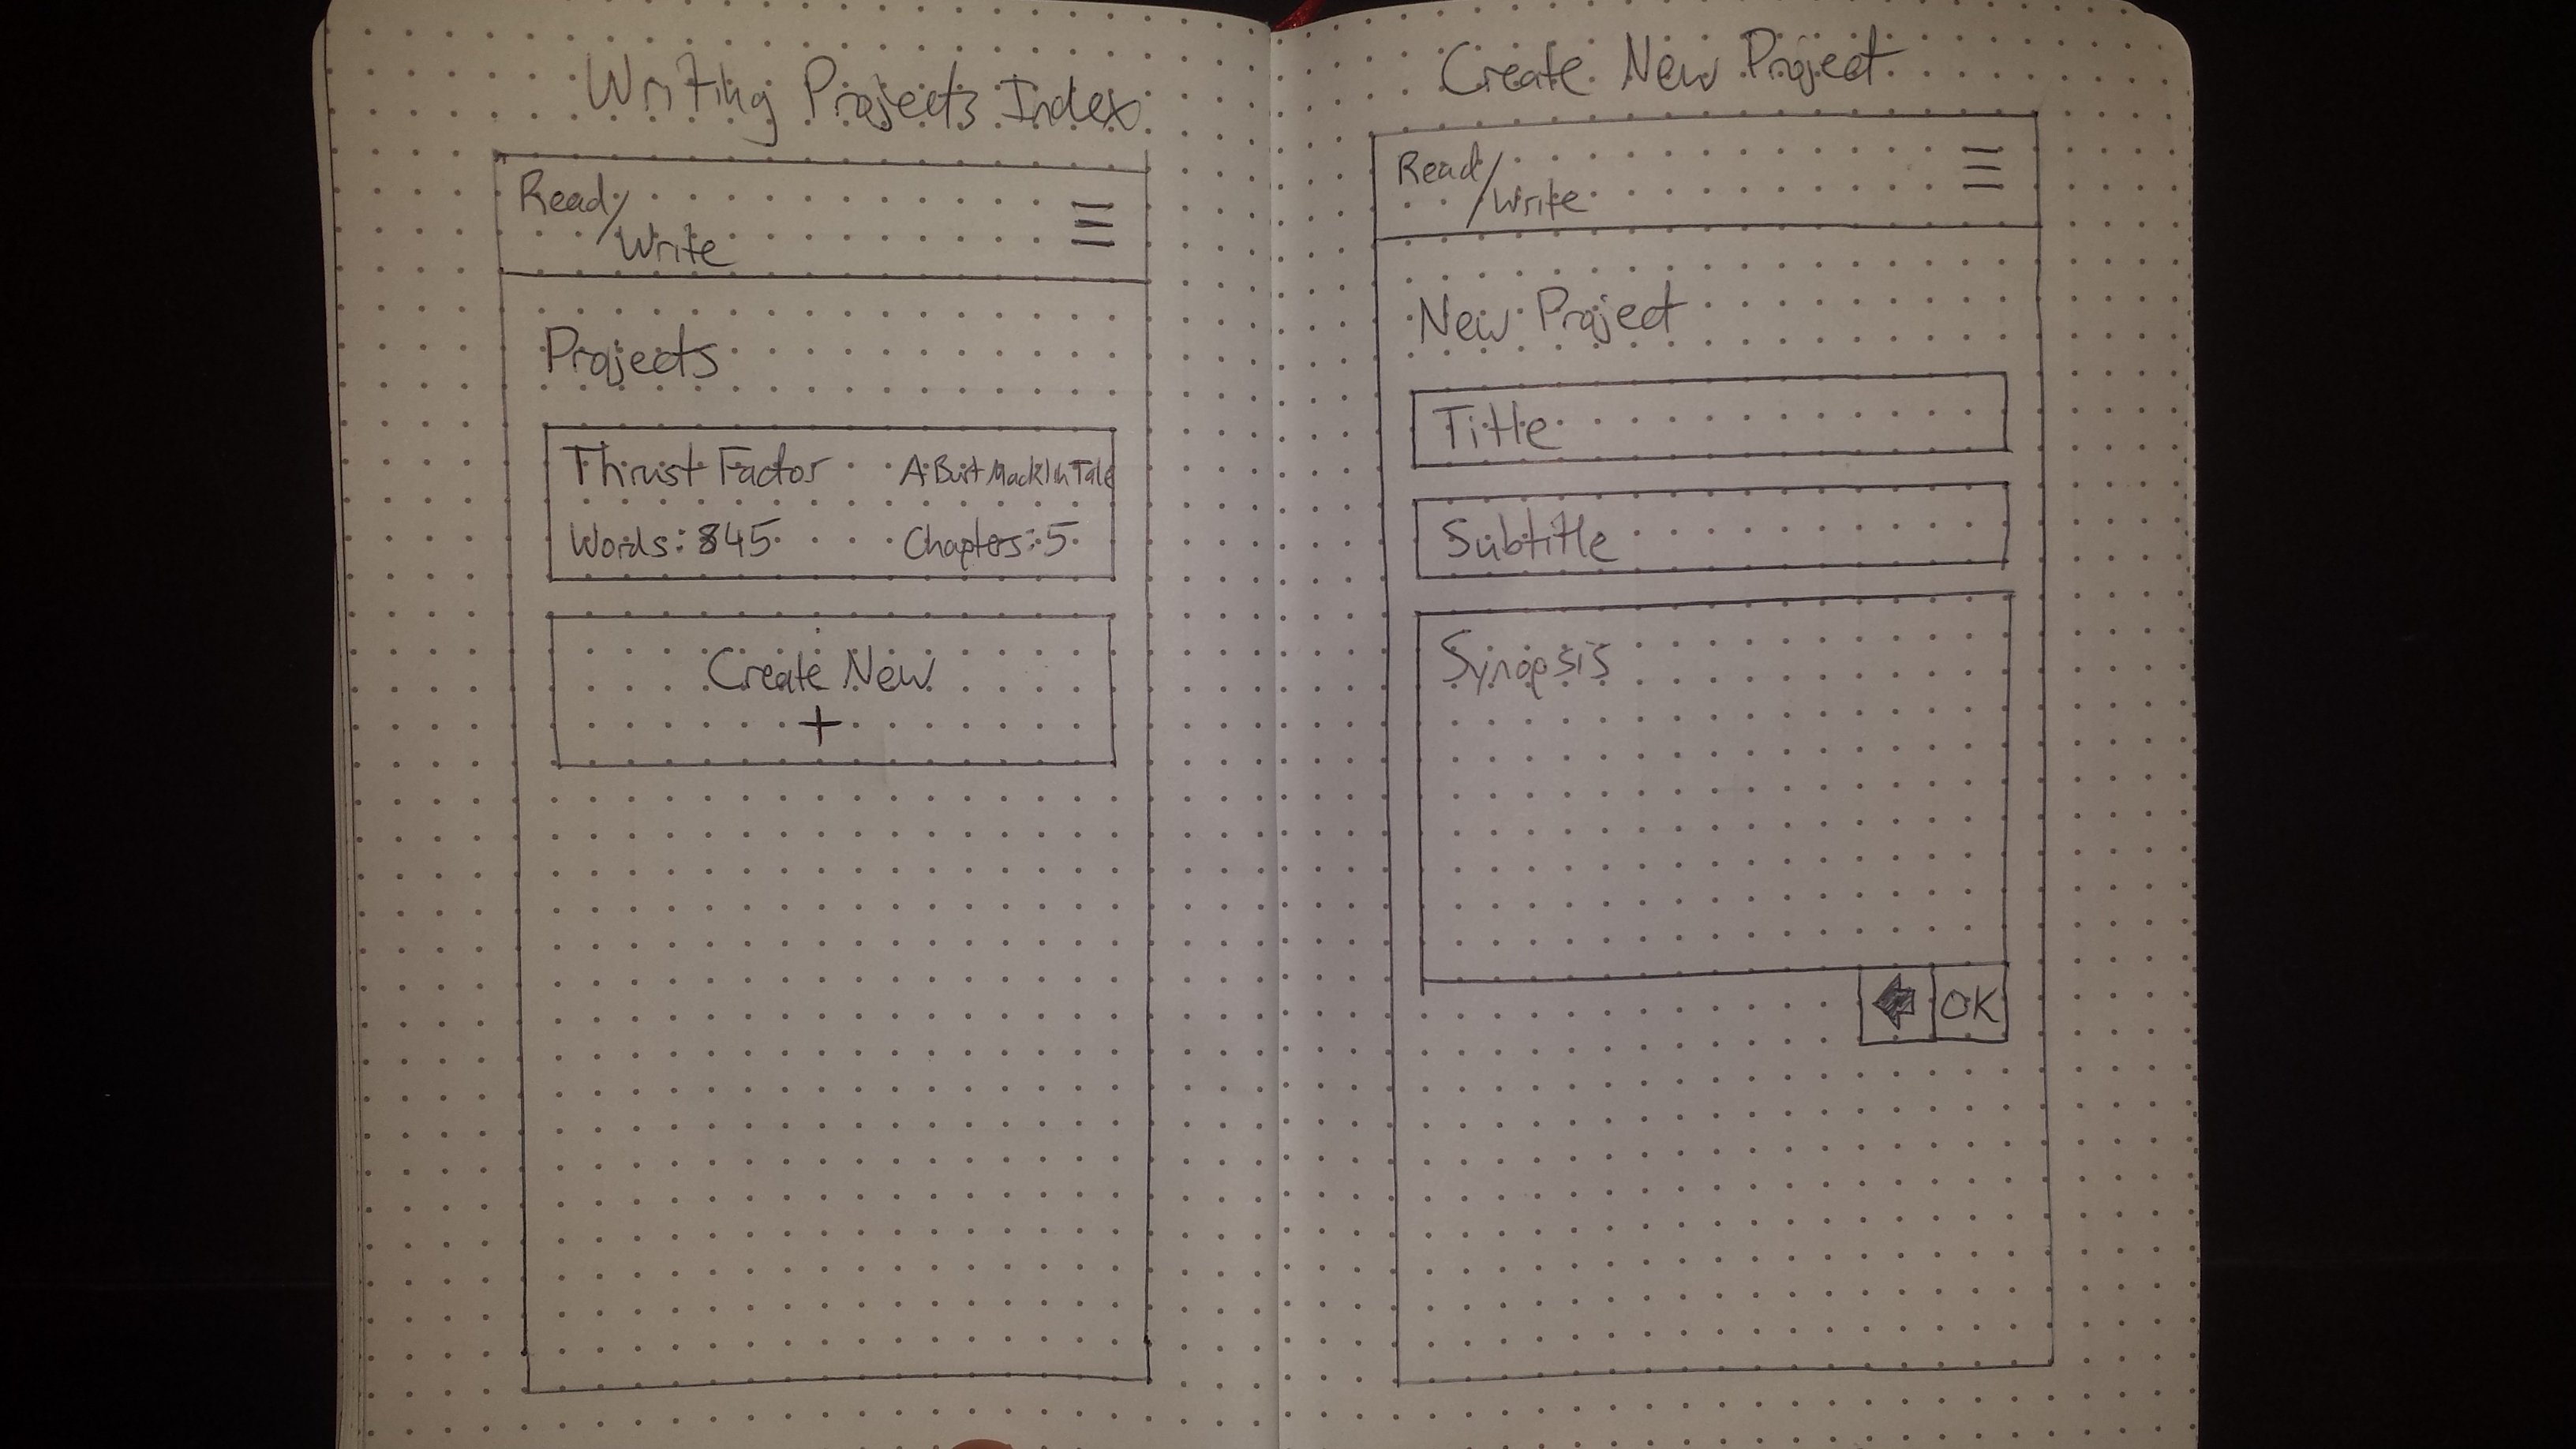 Writing Projects Index
Read/
Write
Projects
Thrust Factor A Burt Macklin Tale
Words: 845 Chapters: 5
Create New
+
Create New Project
Read/
Write
New Project
Title
Subtitle
Synopsis
OK